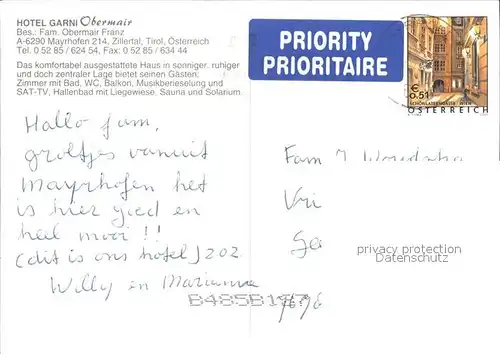 HOTEL GARNI Obermair
Bes.: Fam. Obermair Franz
A-6290 Mayrhofen 214, Zillertal, Tirol, Österreich
Tel. 0 52 85 / 624 54, Fax: 0 52 85 / 634 44
Das komfortabel ausgestattete Haus in sonniger, ruhiger
und doch zentraler Lage bietet seinen Gästen:
Zimmer mit Bad, WC, Balkon, Musikberieselung und
SAT-TV, Hallenbad mit Liegewiese, Sauna und Solarium.
Hallo fam,
groetjes vanuit
Mayrhofen het
is hier goed en
heel mooi !!
(dit is ons hotel) 202
Willy en Marianne
PRIORITY
PRIORITAIRE
€
0,51
SCHÖNLATERNGASSE · WIEN
ÖSTERREICH
Fam
Vri
Ge
privacy protection
Datenschutz